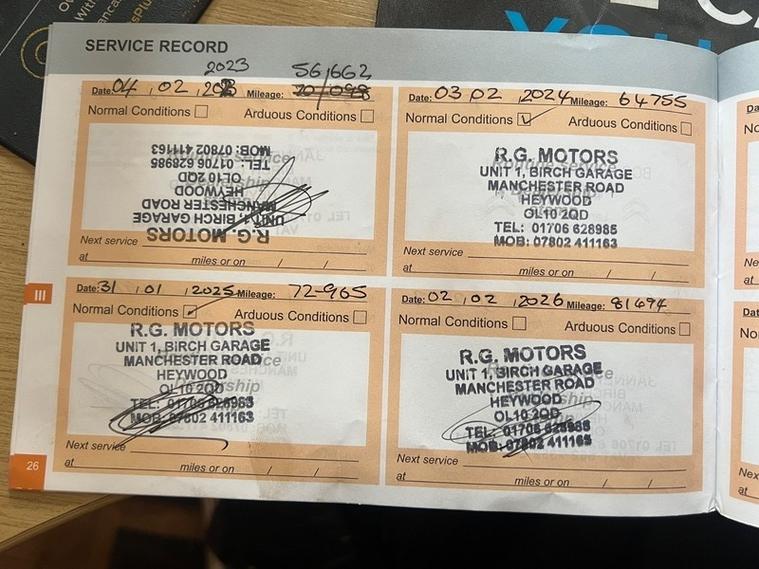 SERVICE RECORD
2023
56,662
Date: 04 02 Mileage:
Normal Conditions Arduous Conditions
R.G. MOTORS
UNIT 1, BIRCH GARAGE
MANCHESTER ROAD
HEYWOOD
OL10 2QD
TEL: 01706 628985
MOB: 07802 411163
Next service
at miles or on / /
Date: 03 02 2024 Mileage: 64755
Normal Conditions Arduous Conditions
R.G. MOTORS
UNIT 1, BIRCH GARAGE
MANCHESTER ROAD
HEYWOOD
OL10 2QD
TEL: 01706 628985
MOB: 07802 411163
Next service
at miles or on / /
III
Date: 31 01 2025 Mileage: 72-965
Normal Conditions Arduous Conditions
R.G. MOTORS
UNIT 1, BIRCH GARAGE
MANCHESTER ROAD
HEYWOOD
OL10 2QD
TEL: 01706 628985
MOB: 07802 411163
Next service
at miles or on / /
Date: 02 02 2026 Mileage: 81494
Normal Conditions Arduous Conditions
R.G. MOTORS
UNIT 1, BIRCH GARAGE
MANCHESTER ROAD
HEYWOOD
OL10 2QD
TEL: 01706 628985
MOB: 07802 411163
Next service
at miles or on / /
26